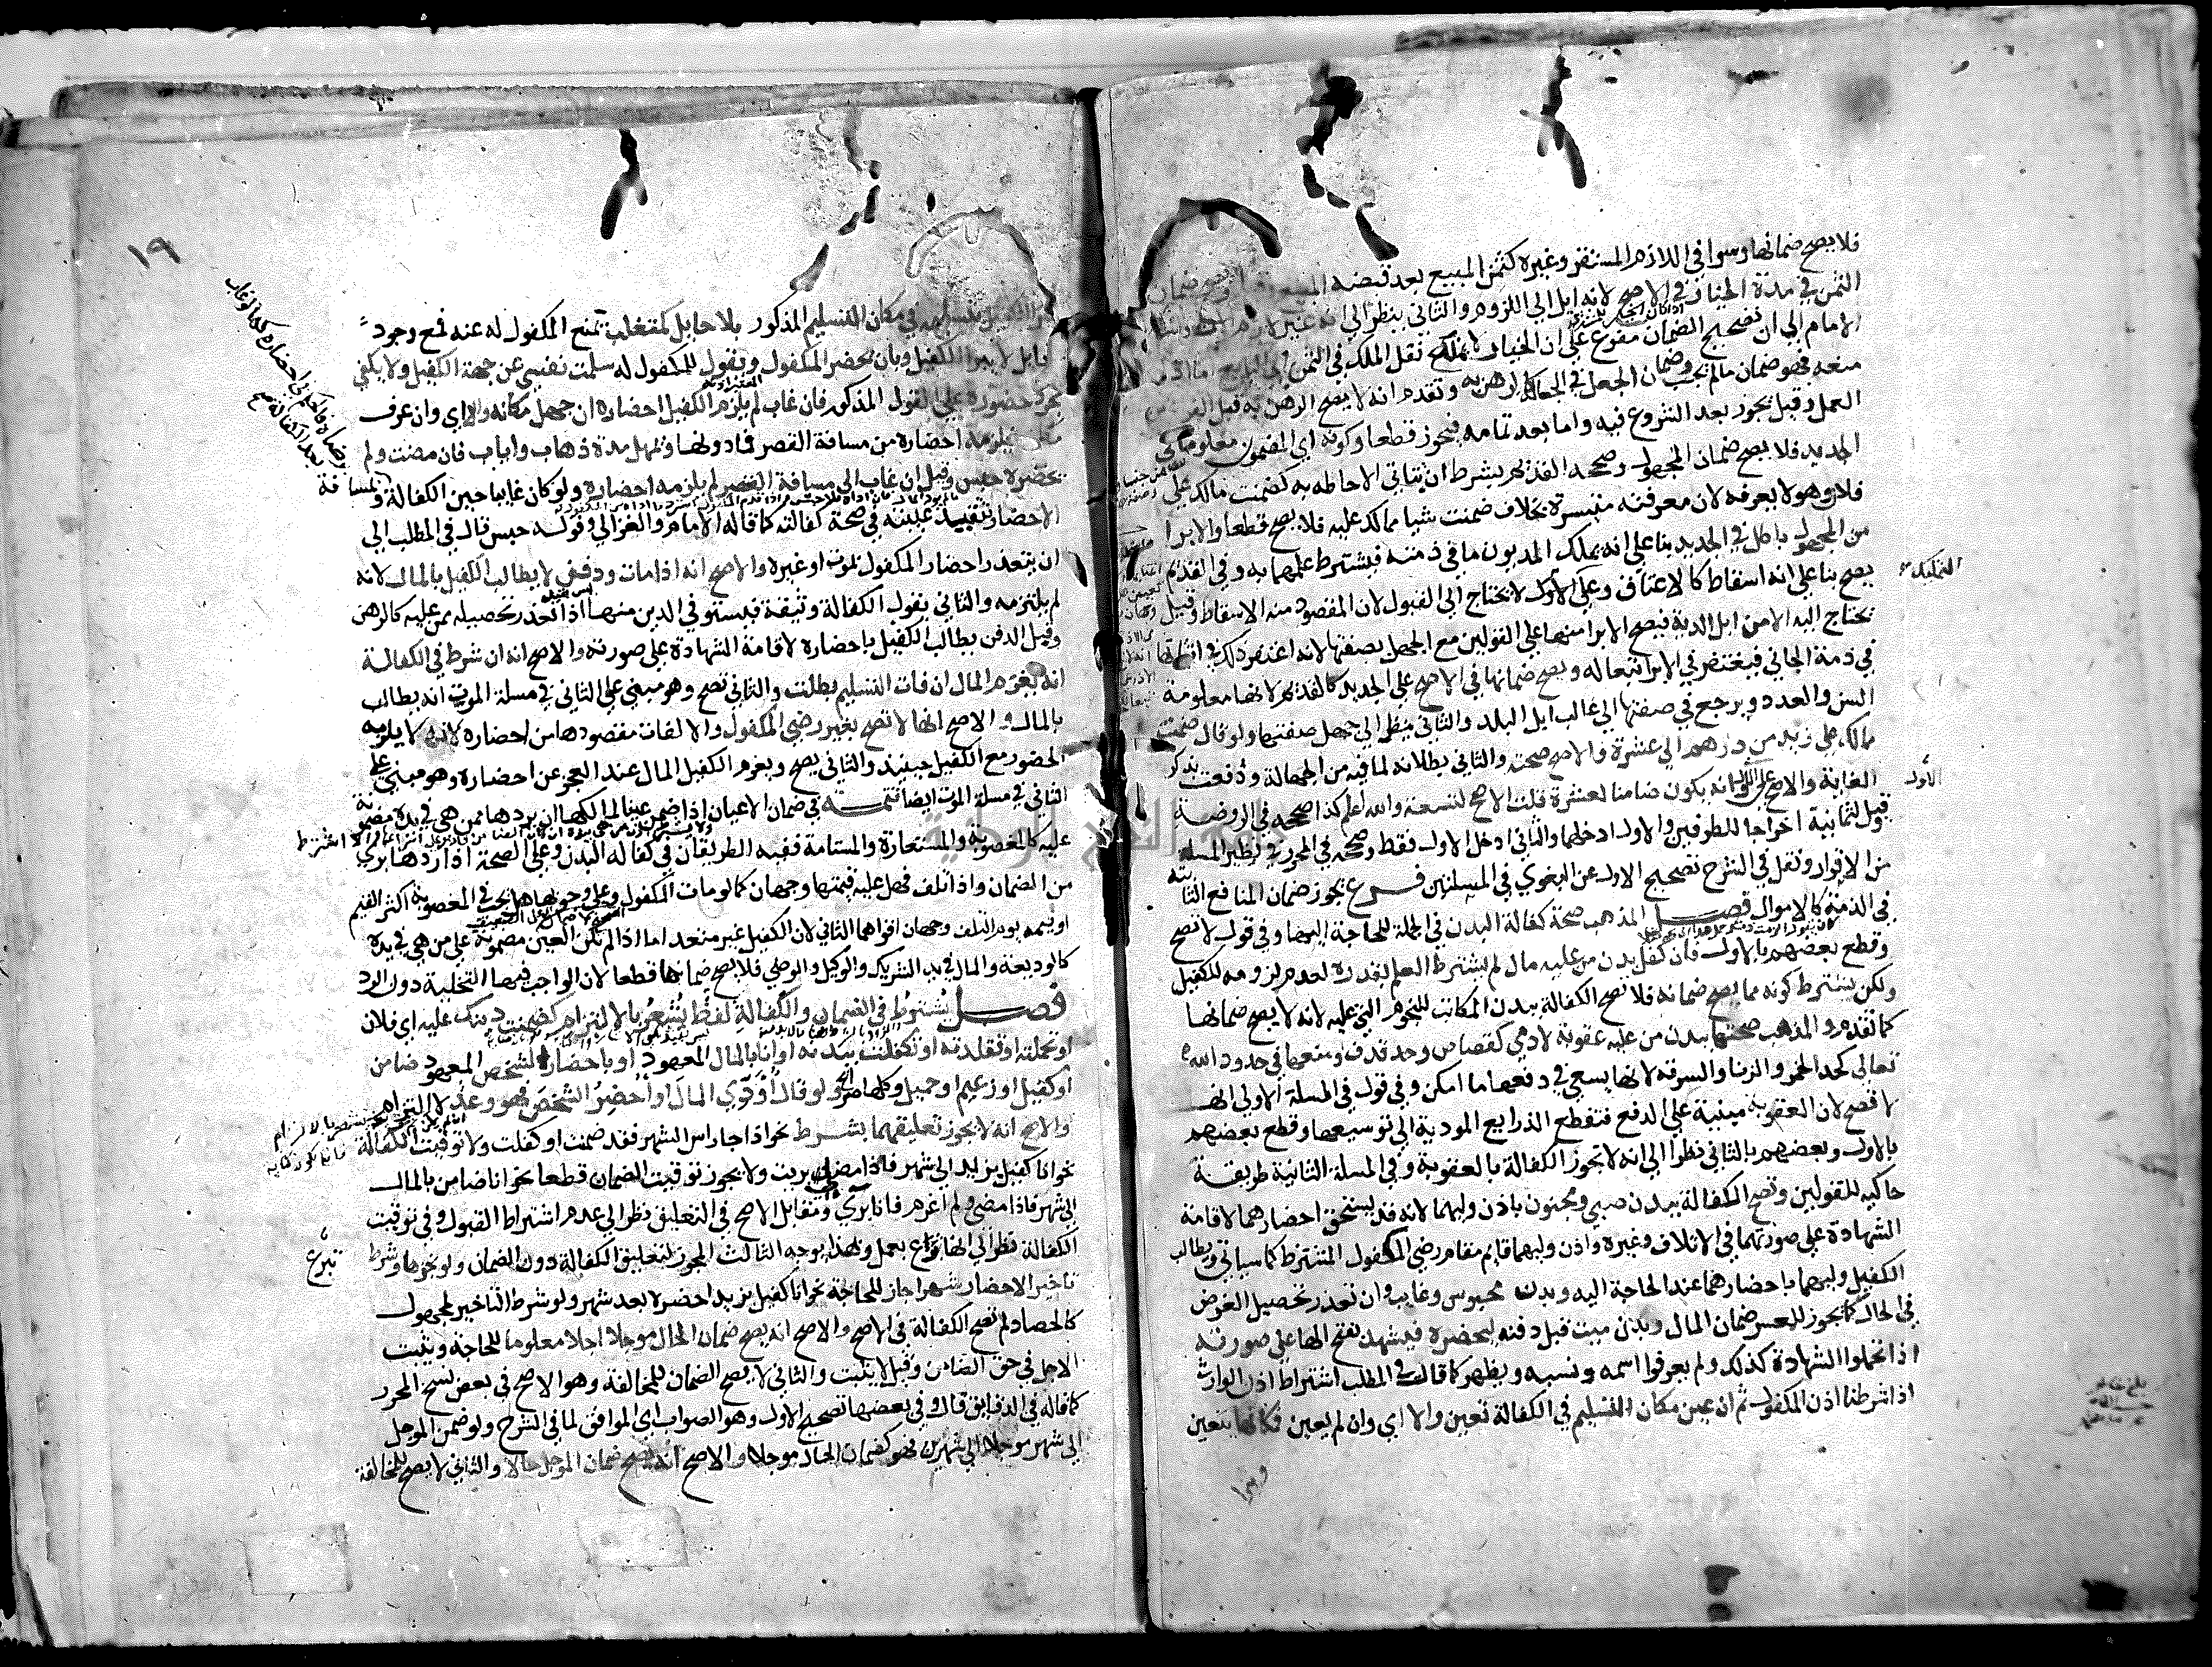 فلا يصح ضمانها وسوا في اللازم المستقر وغيره كثمن المبيع بعد قبضه
الثمن في مدة الخيار في الاصح لانه ايل الى اللزوم والثاني ينظر الى انه غير لازم
الامام الى ان تصحيح الضمان مفرع على ان الخيار لا يمنع نقل الملك في الثمن الى البايع
منعه فهو ضمان ما لم يجب وضمان الجعل في الجعالة كالرهن به وتقدم انه لا يصح الرهن به قبل
العمل وقيل يجوز بعد الشروع فيه واما بعد تمامه فيجوز قطعا وكونه اي المضمون معلوما في
الجديد فلا يصح ضمان المجهول وصححه القديم بشرط ان يتاتى الاحاطه به كضمنت مالك على
فلان وهو لا يعرفه لان معرفته متيسرة بخلاف ضمنت شيا مما لك عليه فلا يصح قطعا والابرا
من المجهول باطل في الجديد بنا على انه تمليك المديون ما في ذمته فيشترط علمهما به وفي القديم
يصح بنا على انه اسقاط كالاعتاق وعلى الاول لا يحتاج الى القبول لان المقصود منه الاسقاط وقيل
يحتاج اليه الا من ابل الدية فيصح الابرا منها على القولين مع الجهل بصفتها لانه اغتفر ذلك في اثباتها
في ذمة الجاني فيغتفر في الابرا تبعا له ويصح ضمانها في الاصح على الجديد كالقديم لانها معلومة
السن والعدد ويرجع في صفتها الى غالب ابل البلد والثاني ينظر الى جهل صفتها ولو قال ضمنت
مالك على زيد من درهم الى عشرة فالاصح صحته والثاني بطلانه لما فيه من الجهالة ودفعت بذكر
الغاية والاصح على الاول انه يكون ضامنا لعشرة قلت الاصح لتسعة والله اعلم كذا صححه في الروضة
وقيل لثمانية اخراجا للطرفين والاول ادخلهما والثاني ادخل الاول فقط وصححه في المحرر في نظير المسلة
من الاقرار ونقل في الشرح تصحيح الاول عن البغوي في المسلتين فرع يجوز ضمان المنافع الثابتة
في الذمة كالاموال فصل المذهب صحة كفالة البدن في الجملة للحاجة اليها وفي قول لا تصح
وقطع بعضهم بالاول فان كفل بدن من عليه مال لم يشترط العلم بقدره لعدم لزومه للكفيل
ولكن يشترط كونه مما يصح ضمانه فلا تصح الكفالة ببدن المكاتب للنجوم التي عليه لانه لا يصح ضمانها
كما تقدم والمذهب صحتها ببدن من عليه عقوبة لادمي كقصاص وحد قذف ومنعها في حدود الله
تعالى كحد الخمر والزنا والسرقة لانها يسعى في دفعها ما امكن وفي قول في المسلة الاولى انها
لا تصح لان العقوبة مبنية على الدفع فتقطع الذرايع المودية الى توسيعها وقطع بعضهم
بالاول وبعضهم بالثاني نظرا الى انه لا يجوز الكفالة بالعقوبة وفي المسلة الثانية طريقة
حاكية للقولين وتصح الكفالة ببدن صبي ومجنون باذن وليهما لانه قد يستحق احضارهما لاقامة
الشهادة على صورتهما في الاتلاف وغيره واذن وليهما قايم مقام رضى المكفول المشترط كما سياتي ويطالب
الكفيل وليهما باحضارهما عند الحاجة اليه وبدن محبوس وغايب وان تعذر تحصيل الغرض
في الحال كما يجوز للمعسر ضمان المال وبدن ميت قبل دفنه ليحضره فيشهد بفتح الها على صورته
اذا تحملوا الشهادة كذلك ولم يعرفوا اسمه ونسبه ويظهر كما قال في المطلب اشتراط اذن الوارث
اذا شرطنا اذن المكفول ثم ان عين مكان التسليم في الكفالة تعين والا اي وان لم يعين فمكانها يتعين
التمليك
الاول
١٩
الكفيل بتسليمه في مكان التسليم المذكور بلا حايل كمتغلب تمنع المكفول له عنه فمع وجود
حايل لا يبرا الكفيل وبان يحضر المكفول ويقول للمكفول له سلمت نفسي عن جهة الكفيل ولا يكفي
مجرد حضوره على القول المذكور فان غاب لم يلزم الكفيل احضاره ان جهل مكانه والا اي وان عرف
مكانه فيلزمه احضاره من مسافة القصر فما دونها ويمهل مدة ذهاب واياب فان مضت ولم
يحضره حبس وقيل ان غاب الى مسافة القصر لم يلزمه احضاره ولو كان غايبا حين الكفالة
الاحضار غيبته في صحة كفالته كما قاله الامام والغزالي وقوله حبس قال في المطلب الى
ان يتعذر احضار المكفول بموت او غيره والاصح انه اذا مات ودفن لا يطالب الكفيل بالمال لانه
لم يلتزمه والثاني يقول الكفالة وثيقة فيستوفي الدين منها اذا تعذر تحصيله ممن عليه كالرهن
وقبل الدفن يطالب الكفيل باحضاره لاقامة الشهادة على صورته والاصح انه ان شرط في الكفالة
انه يغرم المال ان فات التسليم بطلت والثاني تصح وهو مبني على الثاني في مسلة الموت انه يطالب
بالمال والاصح انها لا تصح بغير رضى المكفول والا لفات مقصودها من احضاره لانه لا يلزمه
الحضور مع الكفيل حينيذ والثاني يصح ويغرم الكفيل المال عند العجز عن احضاره وهو مبني على
الثاني في مسلة الموت ايضا تتمة في ضمان الاعيان اذا ضمن عينا لمالكها ان يردها ممن هي في يده مضمونة
عليه كالمغصوبة والمستعارة والمستامة ففيه الطريقان في كفالة البدن وعلى الصحة اذا ردها بري
من الضمان واذا تلف فهل عليه قيمتها وجهان كما لو مات المكفول وعلى وجوبها هل يجب في المغصوبة اكثر القيم
او قيمة يوم التلف وجهان اقواهما الثاني لان الكفيل غير متعد اما اذا لم تكن العين مضمونة على من هي في يده
كالوديعة والمال في يد الشريك والوكيل والوصي فلا يصح ضمانها قطعا لان الواجب فيها التخلية دون الرد
فصل يشترط في الضمان والكفالة لفظ يشعر بالالتزام كضمنت دينك عليه اي فلان
او تحملته او تقلدته او تكفلت ببدنه او انا بالمال المعهود او باحضار الشخص المعهود ضامن
او كفيل او زعيم او حميل وكلها صرايح ولو قال اودي المال او احضر الشخص فهو وعد لا التزام
والاصح انه لا يجوز تعليقهما بشرط نحو اذا جا راس الشهر فقد ضمنت او كفلت ولا توقيت الكفالة
نحو انا كفيل بزيد الى شهر فاذا مضى بريت ولا يجوز توقيت الضمان قطعا نحو انا ضامن بالمال
الى شهر فاذا مضى ولم اغرم فانا بري ومقابل الاصح في التعليق نظر الى عدم اشتراط القبول وفي توقيت
الكفالة نظر الى انها تبرع بعمل وبهذا يوجه الثالث المجوز لتعليق الكفالة دون الضمان ولو نجزها وشرط
تبرع
تاخير الاحضار شهرا جاز للحاجة نحو انا كفيل بزيد احضره بعد شهر ولو شرط التاخير لمجهول
كالحصاد لم تصح الكفالة في الاصح والاصح انه يصح ضمان الحال موجلا اجلا معلوما للحاجة ويثبت
الاجل في حق الضامن وقيل لا يثبت والثاني لا يصح الضمان للمخالفة وهو الاصح في بعض نسخ المحرر
كما قاله في الدقايق قال وفي بعضها تصحيح الاول وهو الصواب اي الموافق لما في الشرح ولو ضمن الموجل
الى شهر موجلا الى شهرين فهو كضمان الحال موجلا والاصح انه يصح ضمان الموجل حالا والثاني لا يصح للمخالفة